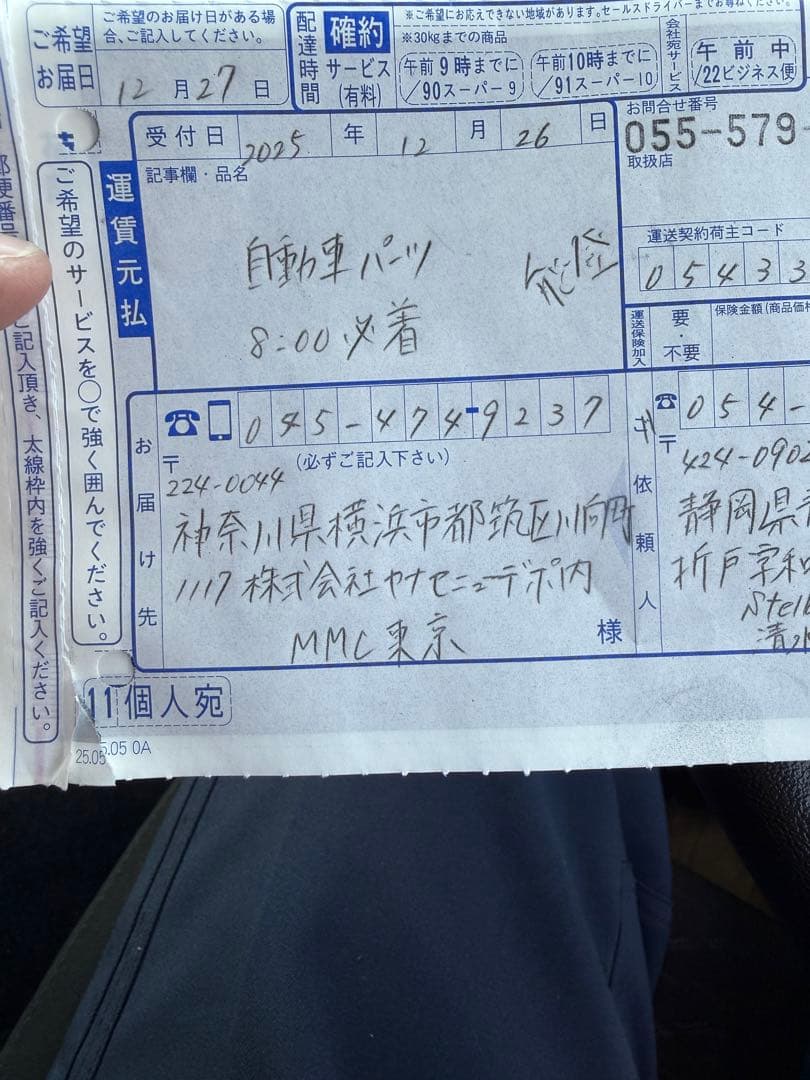 ご希望
お届日
ご希望のお届け日がある場
合、ご記入してください。
12月27日
配達時間
確約
サービス
(有料)
※ご希望にお応えできない地域があります。セールスドライバーまでお尋ねください。
※30kgまでの商品
午前9時までに
/90スーパー9
午前10時までに
/91スーパー10
会社宛サービス
午前中
/22ビジネス便
受付日 2025年12月26日
お問合せ番号
055-579
取扱店
運賃元払
ご希望のサービスを○で強く囲んでください。
記事欄・品名
自動車パーツ
8:00必着
運送契約荷主コード
05433
運送保険加入
要・不要
保険金額(商品価格
ご記入頂き、太線枠内を強くご記入ください。
お届け先
045-474-9237
(必ずご記入下さい)
〒
224-0044
神奈川県横浜市都筑区川向町
1117 株式会社ヤナセニューデポ内
MMC東京
様
ご依頼人
054-
〒
424-0902
静岡県
折戸字
11個人宛
25.05
5.05 0A